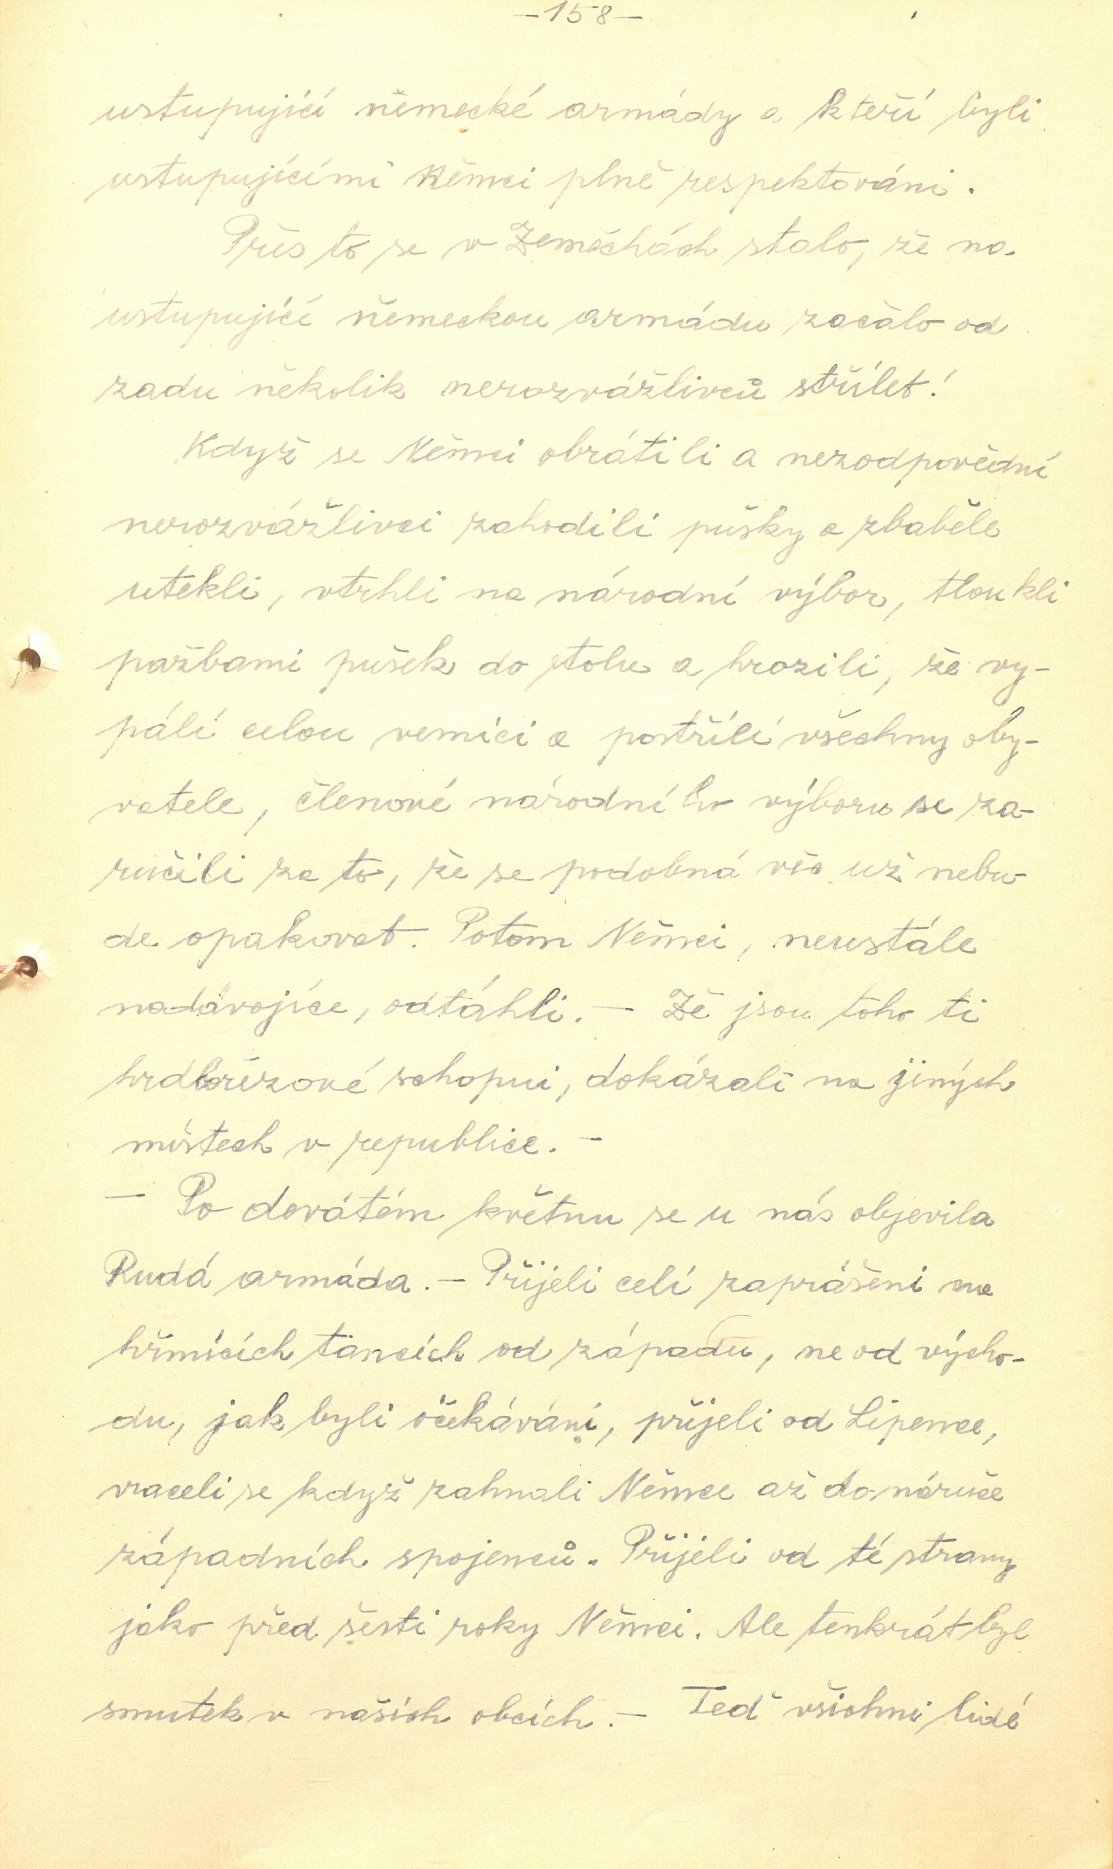 -158-
ustupující německé armády a kteří byli
ustupujícími Němci plně respektováni.
Přes to se v Zeměchách stalo, že na
ustupující německou armádu začalo od
zadu několik nerozvážlivců střílet!
Když se Němci obrátili a nezodpovědní
nerozvážlivci zahodili pušky a zbaběle
utekli, vtrhli na národní výbor, tloukli
pažbami pušek do stolu a hrozili, že vy-
pálí celou vesnici a postřílí všechny oby-
vatele, členové národního výboru se za-
ručili za to, že se podobná věc už nebu-
de opakovat. Potom Němci, neustále
nadávajíce, odtáhli. — Že jsou toho ti
hrdlořezové schopni, dokázali na jiných
místech v republice. —
— Po devátém květnu se u nás objevila
Rudá armáda. — Přijeli celí zaprášeni na
hřmících tancích od západu, ne od výcho-
du, jak byli očekáváni, přijeli od Lipence,
vraceli se když zahnali Němce až do náruče
západních spojenců. Přijeli od té strany
jako před šesti roky Němci. Ale tenkrát byl
smutek v našich obcích. — Teď všichni lidé